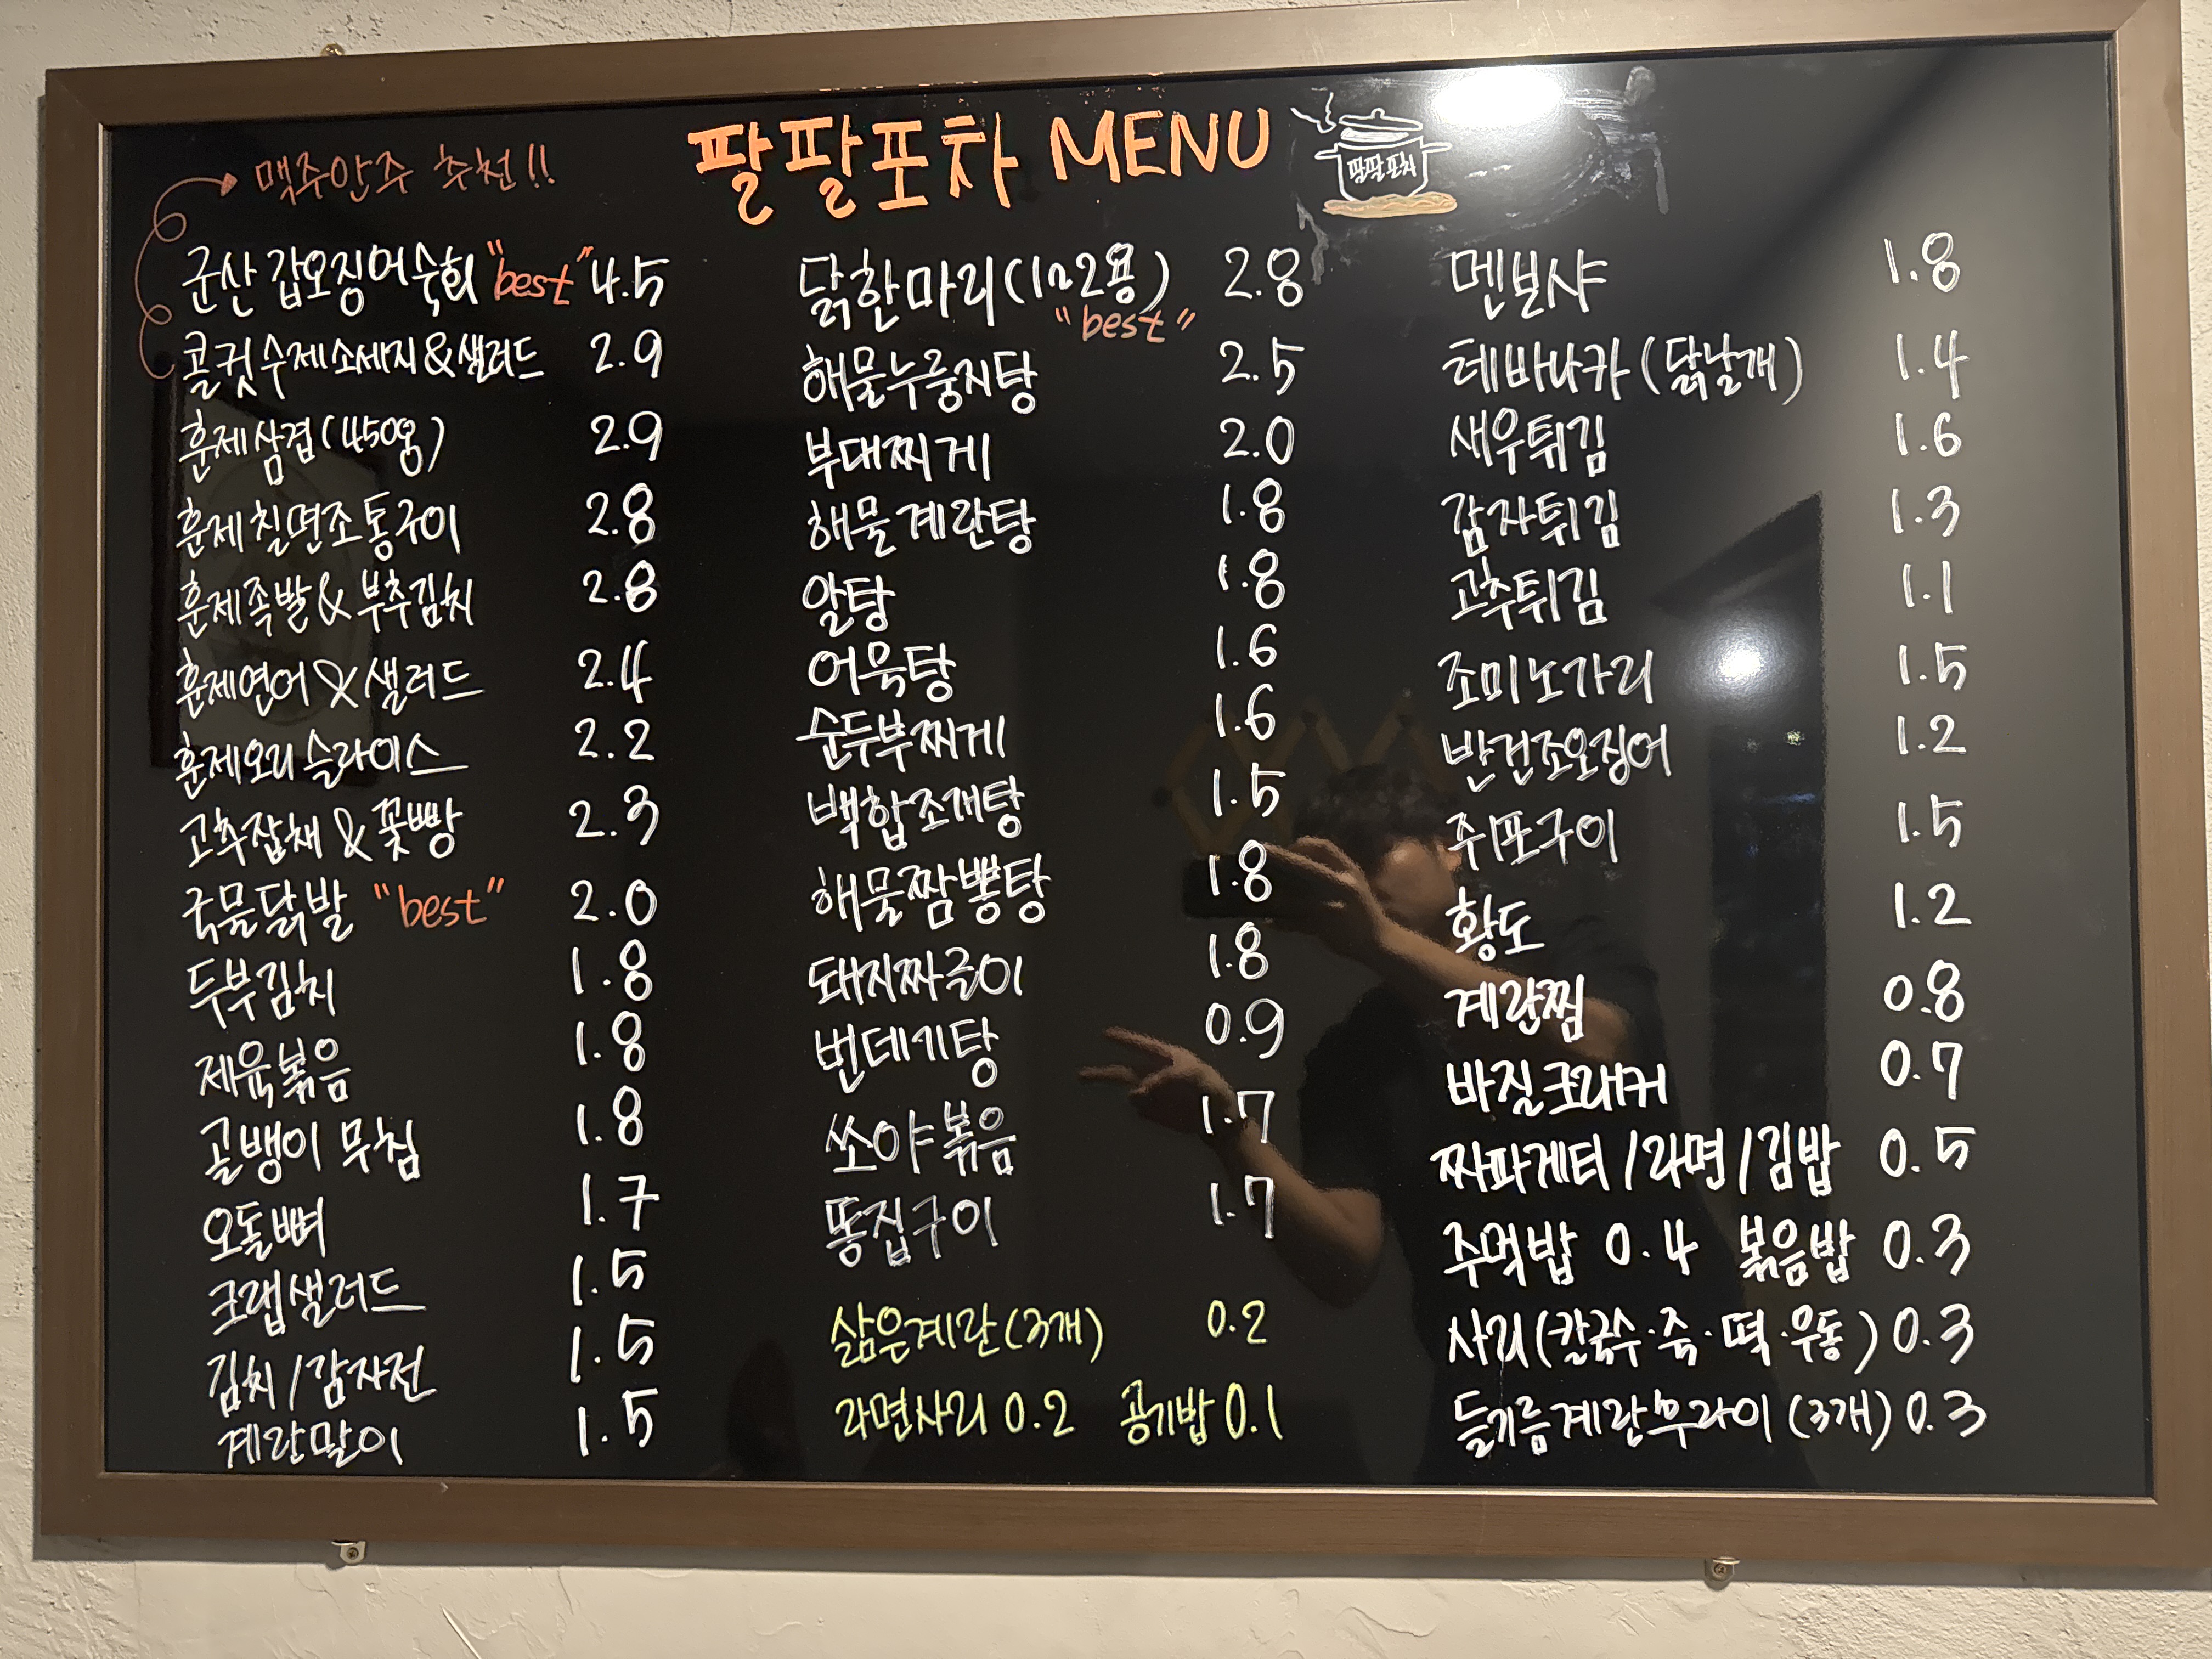 팔팔포차 MENU
팔팔포차
맥주안주 추천!!
군산 갑오징어숙회 "best" 4.5
콜컷수제소세지&샐러드 2.9
훈제삼겹(450g) 2.9
훈제칠면조통구이 2.8
훈제족발&부추김치 2.8
훈제연어&샐러드 2.4
훈제오리슬라이스 2.2
고추잡채&꽃빵 2.3
국물닭발 "best" 2.0
두부김치 1.8
제육볶음 1.8
골뱅이 무침 1.8
오돌뼈 1.7
크랩샐러드 1.5
김치/감자전 1.5
계란말이 1.5
닭한마리(1인2용) 2.8
"best"
해물누룽지탕 2.5
부대찌게 2.0
해물계란탕 1.8
알탕 1.8
어묵탕 1.6
순두부찌게 1.6
백합조개탕 1.5
해물짬뽕탕 1.8
돼지짜글이 1.8
번데기탕 0.9
쏘야볶음 1.7
똥집구이 1.7
삶은계란(3개) 0.2
라면사리 0.2 공기밥 0.1
멘보샤 1.8
테바나카(닭날개) 1.4
새우튀김 1.6
감자튀김 1.3
고추튀김 1.1
조미노가리 1.5
반건조오징어 1.2
쥐포구이 1.5
황도 1.2
계란찜 0.8
바질크래커 0.7
짜파게티/라면/김밥 0.5
주먹밥 0.4 볶음밥 0.3
사리(칼국수·죽·떡·우동) 0.3
들기름계란후라이(3개) 0.3